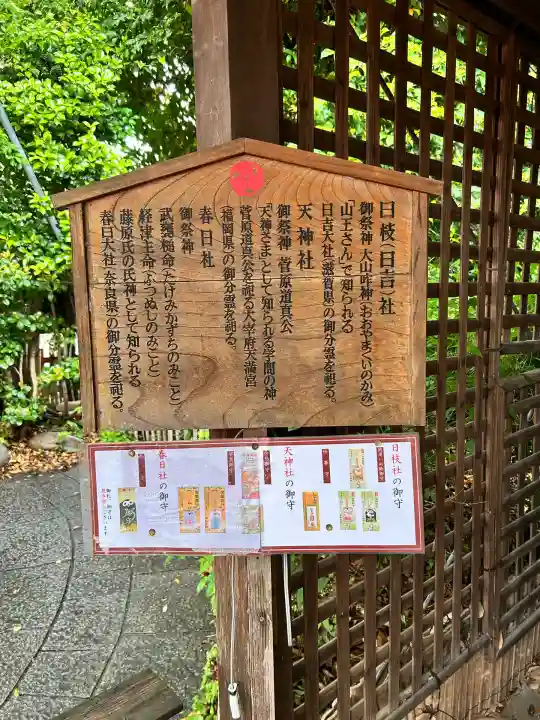 日枝(日吉)社
御祭神 大山咋神(おおやまくいのかみ)
「山王さん」で知られる
日吉大社(滋賀県)の御分霊を祀る。
天神社
御祭神 菅原道真公
「天神さま」として知られる学問の神
菅原道真公を祀る太宰府天満宮
(福岡県)の御分霊を祀る。
春日社
御祭神
武甕槌命(たけみかづちのみこと)
経津主命(ふつぬしのみこと)
藤原氏の氏神として知られる
春日大社(奈良県)の御分霊を祀る。
日枝社の御守
天神社の御守
春日社の御守